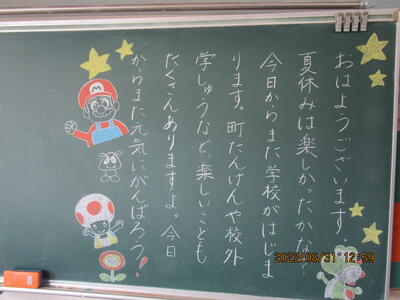 おはようございます!
夏休みは楽しかったかな?
今日からまた学校がはじま
ります。町たんけんや校外
学しゅうなど、楽しいことも
たくさんありますよ。今日
からまた元気にがんばろう!
2023/08/31 12:59